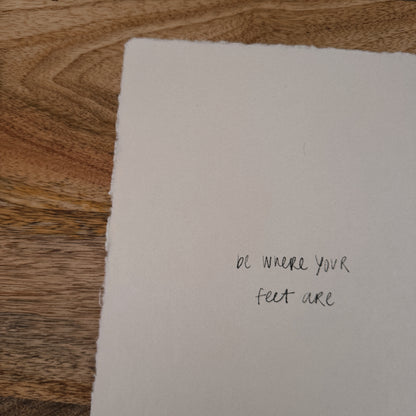 be where your
feet are